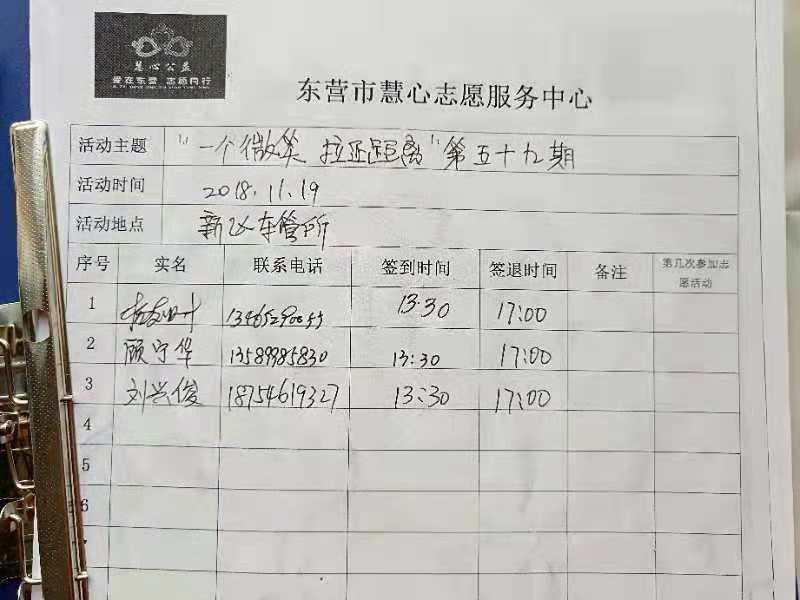 慧心公益
爱在东营 志愿同行
东营市慧心志愿服务中心
活动主题 "一个微笑 拉近距离"第五十九期
活动时间 2018.11.19
活动地点 新区车管所
序号 实名 联系电话 签到时间 签退时间 备注 第几次参加志愿活动
1 13:30 17:00
2 顾宁华 13589985830 13:30 17:00
3 刘兴俊 18754619327 13:30 17:00
4
5
6